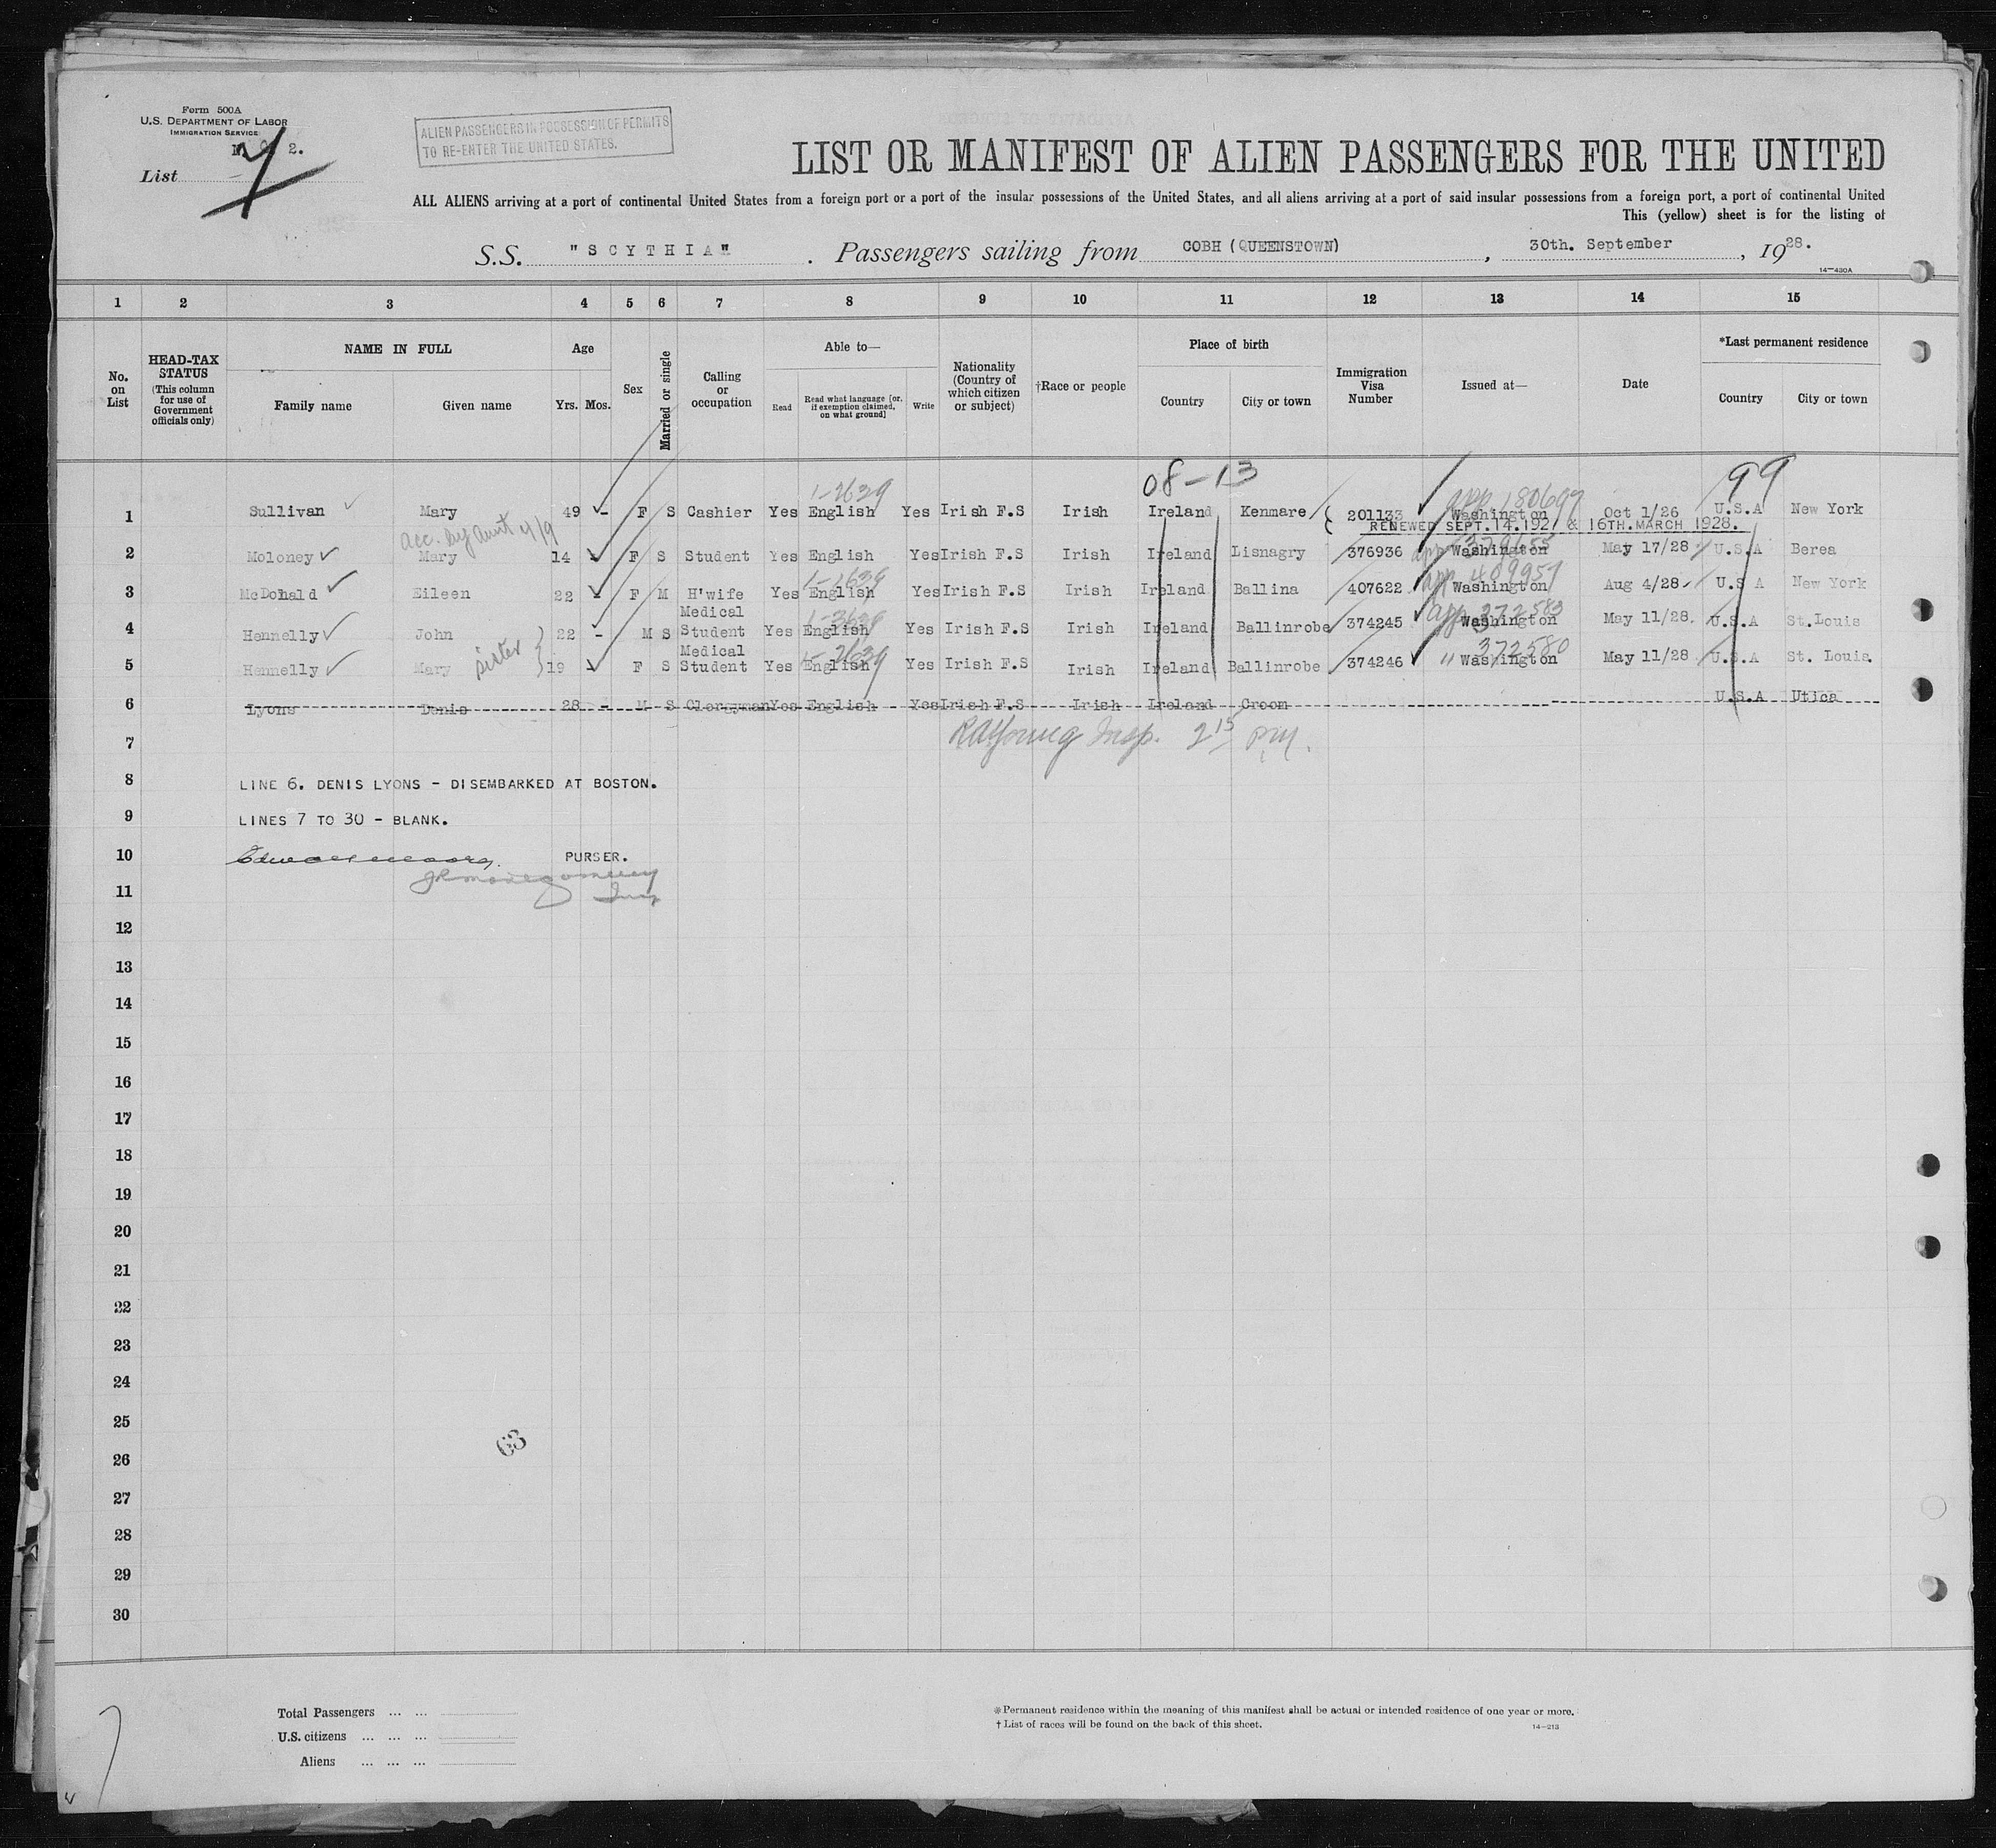 Form 500A
U.S. DEPARTMENT OF LABOR
IMMIGRATION SERVICE
2.
List
ALIEN PASSENGERS IN POSSESSION OF PERMITS
TO RE-ENTER THE UNITED STATES.
LIST OR MANIFEST OF ALIEN PASSENGERS FOR THE UNITED
ALL ALIENS arriving at a port of continental United States from a foreign port or a port of the insular possessions of the United States, and all aliens arriving at a port of said insular possessions from a foreign port, a port of continental United
This (yellow) sheet is for the listing of
S.S. "SCYTHIA". Passengers sailing from COBH (QUEENSTOWN), 30th. September, 1928.
14-430A
1 2 3 4 5 6 7 8 9 10 11 12 13 14 15
No. on List
HEAD-TAX STATUS (This column for use of Government officials only)
NAME IN FULL Family name Given name
Age Yrs. Mos.
Sex
Married or single
Calling or occupation
Able to— Read Read what language [or, if exemption claimed, on what ground] Write
Nationality (Country of which citizen or subject)
†Race or people
Place of birth Country City or town
Immigration Visa Number
Issued at—
Date
*Last permanent residence Country City or town
08-13 99
1-2639 app. 180697
1 Sullivan Mary 49 - F S Cashier Yes English Yes Irish F.S Irish Ireland Kenmare 201133 Washington Oct 1/26 U.S.A New York
RENEWED SEPT.14.1927 & 16TH.MARCH 1928.
acc. by aunt 4/9
2 Moloney Mary 14 - F S Student Yes English Yes Irish F.S Irish Ireland Lisnagry 376936 Washington May 17/28 U.S.A Berea
app 409957
3 McDonald Eileen 22 - F M H'wife Yes English Yes Irish F.S Irish Ireland Ballina 407622 Washington Aug 4/28 U.S A New York
1-3639 app. 372583
4 Hennelly John 22 - M S Medical Student Yes English Yes Irish F.S Irish Ireland Ballinrobe 374245 Washington May 11/28. U.S.A St.Louis
sister 1-2639 372580
5 Hennelly Mary 19 - F S Medical Student Yes English Yes Irish F.S Irish Ireland Ballinrobe 374246 " Washington May 11/28 U.S.A St. Louis.
6 Lyons Denis 28 - M S Clergyman Yes English Yes Irish F.S Irish Ireland Croom U.S.A Utica
7 RAYoung Insp. 2 15 pm.
8 LINE 6. DENIS LYONS - DISEMBARKED AT BOSTON.
9 LINES 7 TO 30 - BLANK.
10 PURSER.
JRMontgomery
11 Insp
12
13
14
15
16
17
18
19
20
21
22
23
24
25
63
26
27
28
29
30
Total Passengers ... ...
U.S. citizens ... ... ...
Aliens ... ... ...
*Permanent residence within the meaning of this manifest shall be actual or intended residence of one year or more.
† List of races will be found on the back of this sheet.
14-213